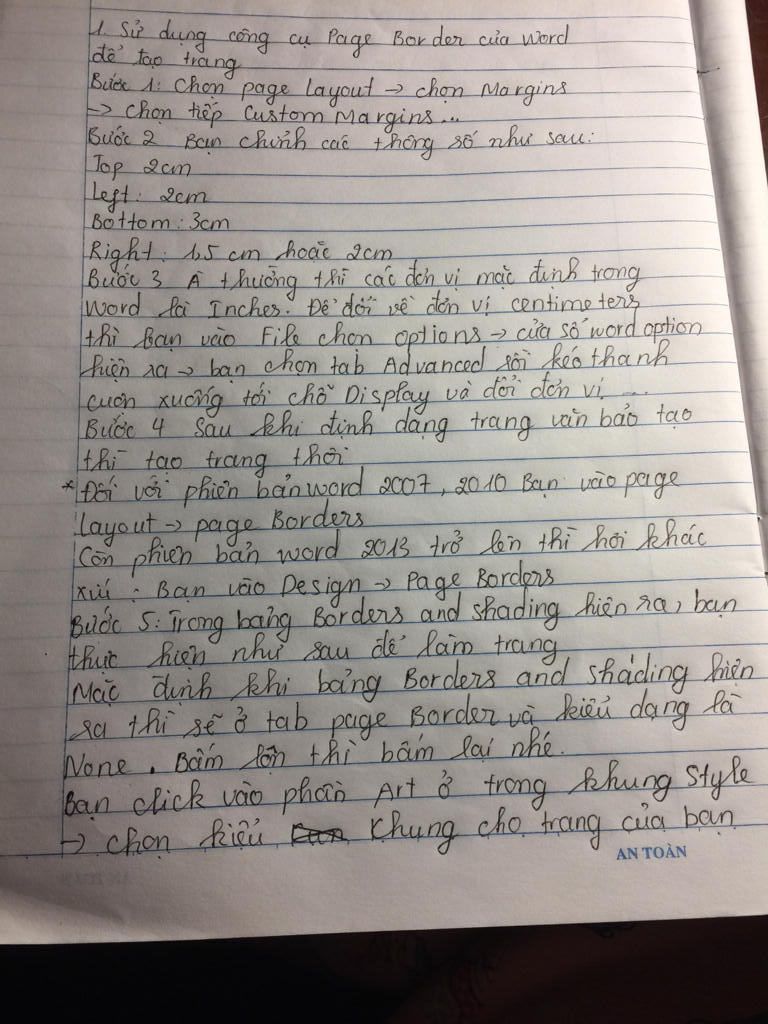 1. Sử dụng công cụ Page Border của Word
để tạo trang
Bước 1: Chọn page layout → chọn Margins
→ chọn tiếp Custom Margins...
Bước 2 Bạn chỉnh các thông số như sau:
Top 2cm
Left: 2cm
Bottom: 3cm
Right: 1,5 cm hoặc 2cm
Bước 3 À thường thì các đơn vị mặc định trong
Word là Inches. Để đổi về đơn vị centimeters
thì Bạn vào File chọn options → cửa sổ word option
hiện ra → bạn chọn tab Advanced rồi kéo thanh
cuộn xuống tới chỗ Display và đổi đơn vị ...
Bước 4 Sau khi định dạng trang văn bảo tạo
thì tạo trang thôi
* Đối với phiên bản word 2007, 2010 Bạn vào page
layout → page Borders
Còn phiên bản word 2013 trở lên thì hơi khác
xíu: Bạn vào Design → Page Borders
Bước 5: Trong bảng Borders and shading hiện ra, bạn
thực hiện như sau để làm trang
Mặc định khi bảng Borders and shading hiện
ra thì sẽ ở tab page Border và kiểu dạng là
None. Bấm lộn thì bấm lại nhé.
Bạn click vào phần Art ở trong khung Style
→ chọn kiểu khung cho trang của bạn
AN TOÀN